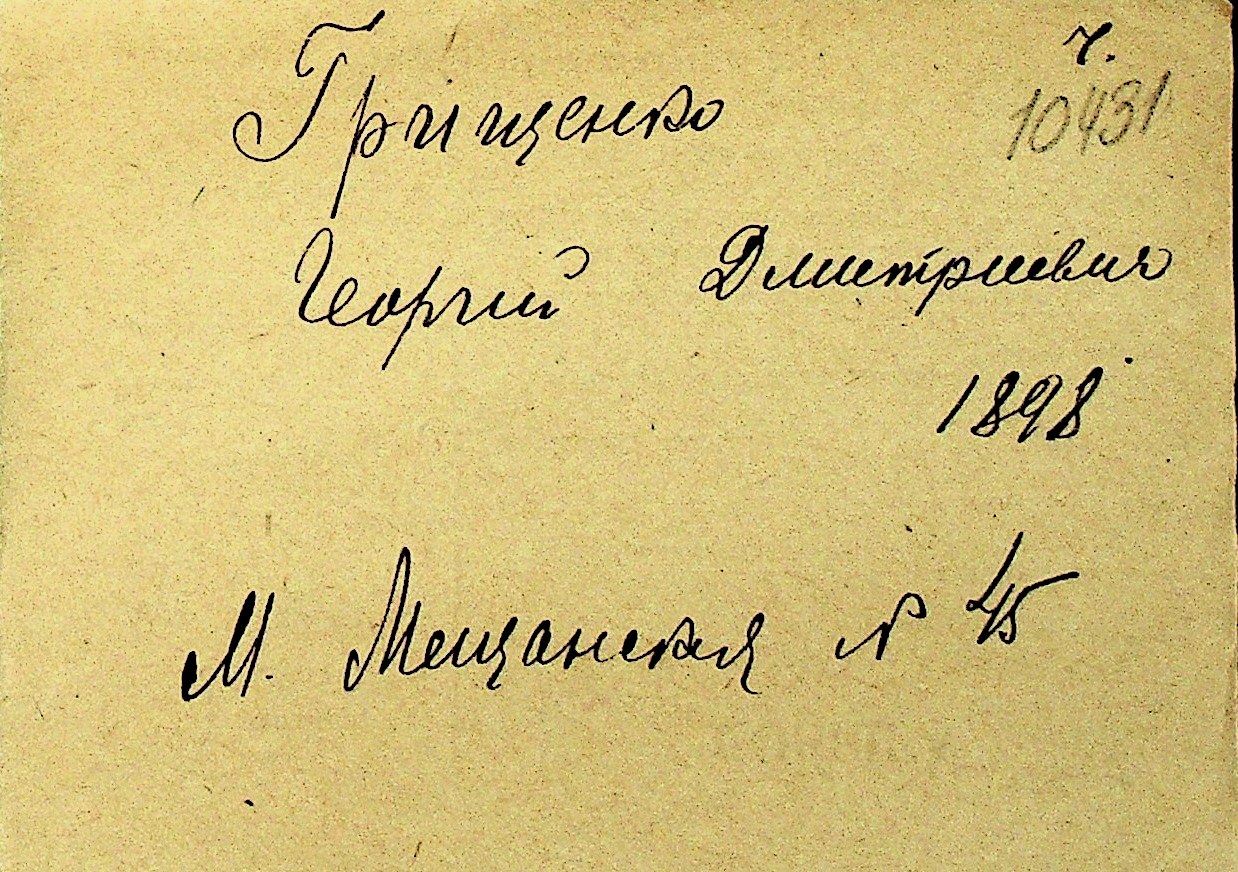 ч.
10431
Грищенко
Георгий Дмитриевич
1898
М. Мещанская № 45